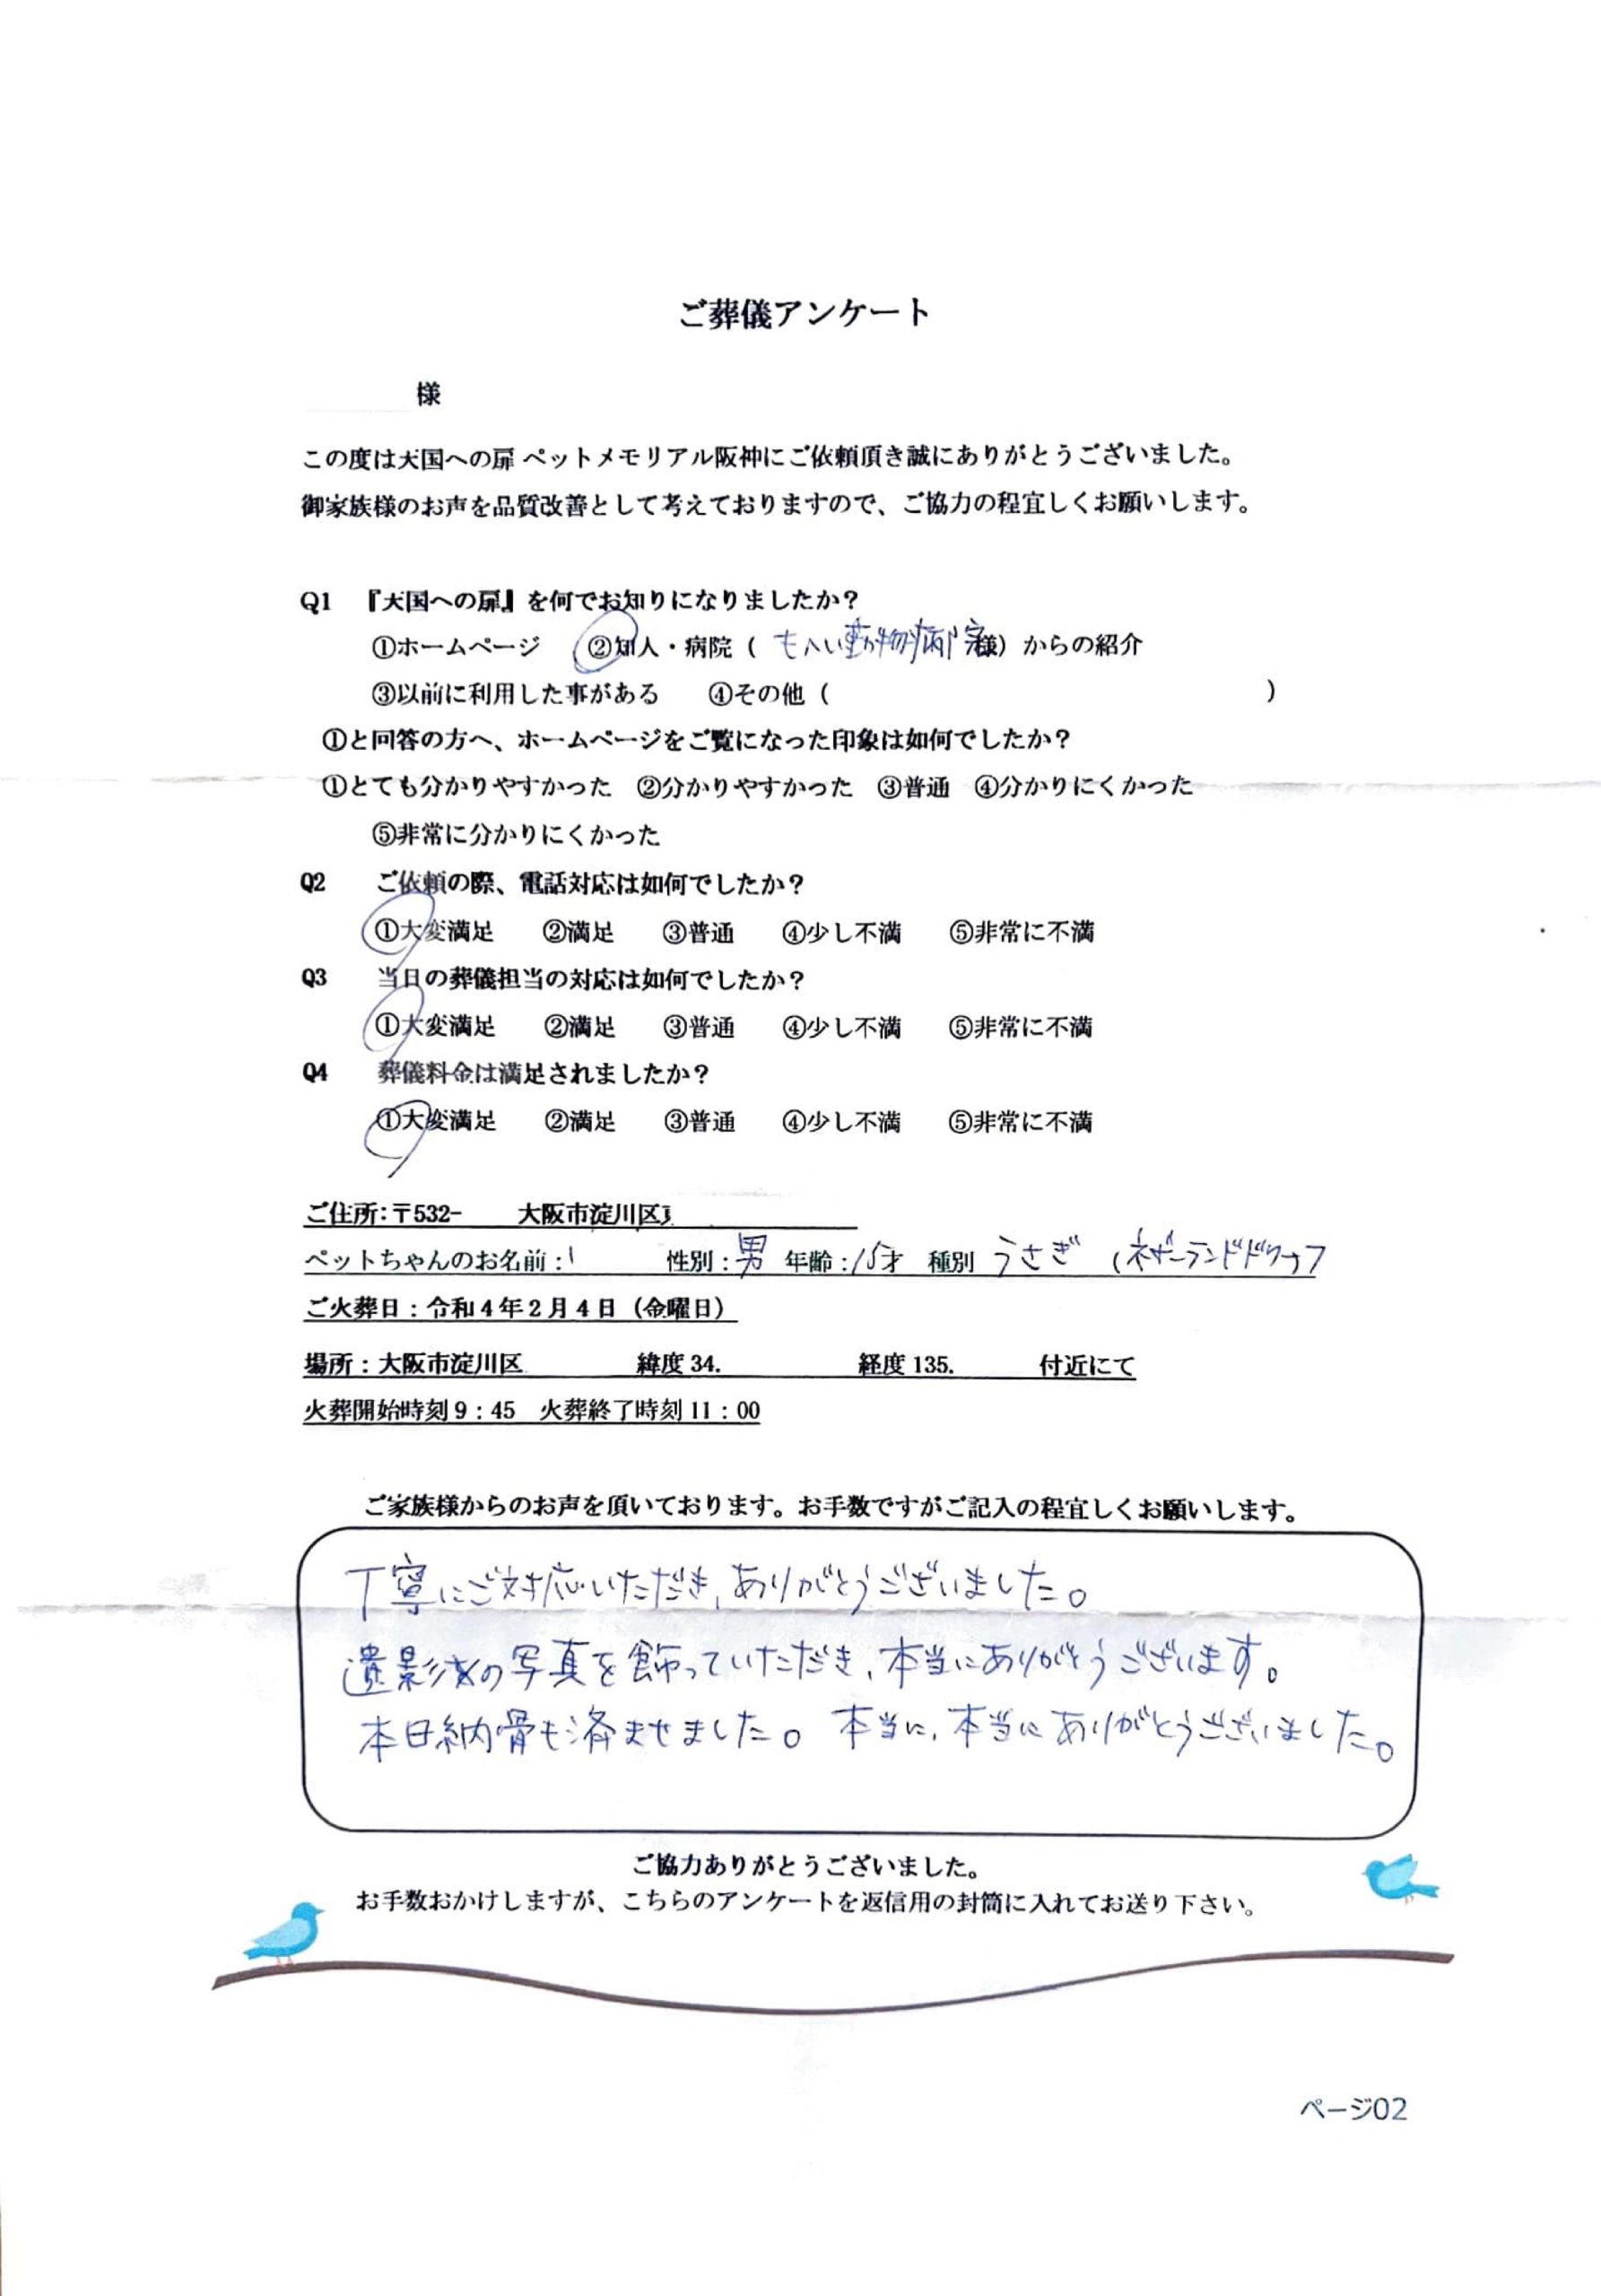 ご葬儀アンケート
様
この度は天国への扉 ペットメモリアル阪神にご依頼頂き誠にありがとうございました。
御家族様のお声を品質改善として考えておりますので、ご協力の程宜しくお願いします。
Q1 『天国への扉』を何でお知りになりましたか？
①ホームページ ②知人・病院（ 動物病院様）からの紹介
③以前に利用した事がある ④その他（ ）
①と回答の方へ、ホームページをご覧になった印象は如何でしたか？
①とても分かりやすかった ②分かりやすかった ③普通 ④分かりにくかった
⑤非常に分かりにくかった
Q2 ご依頼の際、電話対応は如何でしたか？
①大変満足 ②満足 ③普通 ④少し不満 ⑤非常に不満
Q3 当日の葬儀担当の対応は如何でしたか？
①大変満足 ②満足 ③普通 ④少し不満 ⑤非常に不満
Q4 葬儀料金は満足されましたか？
①大変満足 ②満足 ③普通 ④少し不満 ⑤非常に不満
ご住所：〒532- 大阪市淀川区
ペットちゃんのお名前： 性別：男 年齢：15才 種別 うさぎ （ネザーランドドワーフ
ご火葬日：令和４年２月４日（金曜日）
場所：大阪市淀川区 緯度 34. 経度 135. 付近にて
火葬開始時刻 9：45 火葬終了時刻 11：00
ご家族様からのお声を頂いております。お手数ですがご記入の程宜しくお願いします。
丁寧にご対応いただき、ありがとうございました。
遺影の写真を飾っていただき、本当にありがとうございます。
本日納骨も済ませました。本当に、本当にありがとうございました。
ご協力ありがとうございました。
お手数おかけしますが、こちらのアンケートを返信用の封筒に入れてお送り下さい。
ページ02